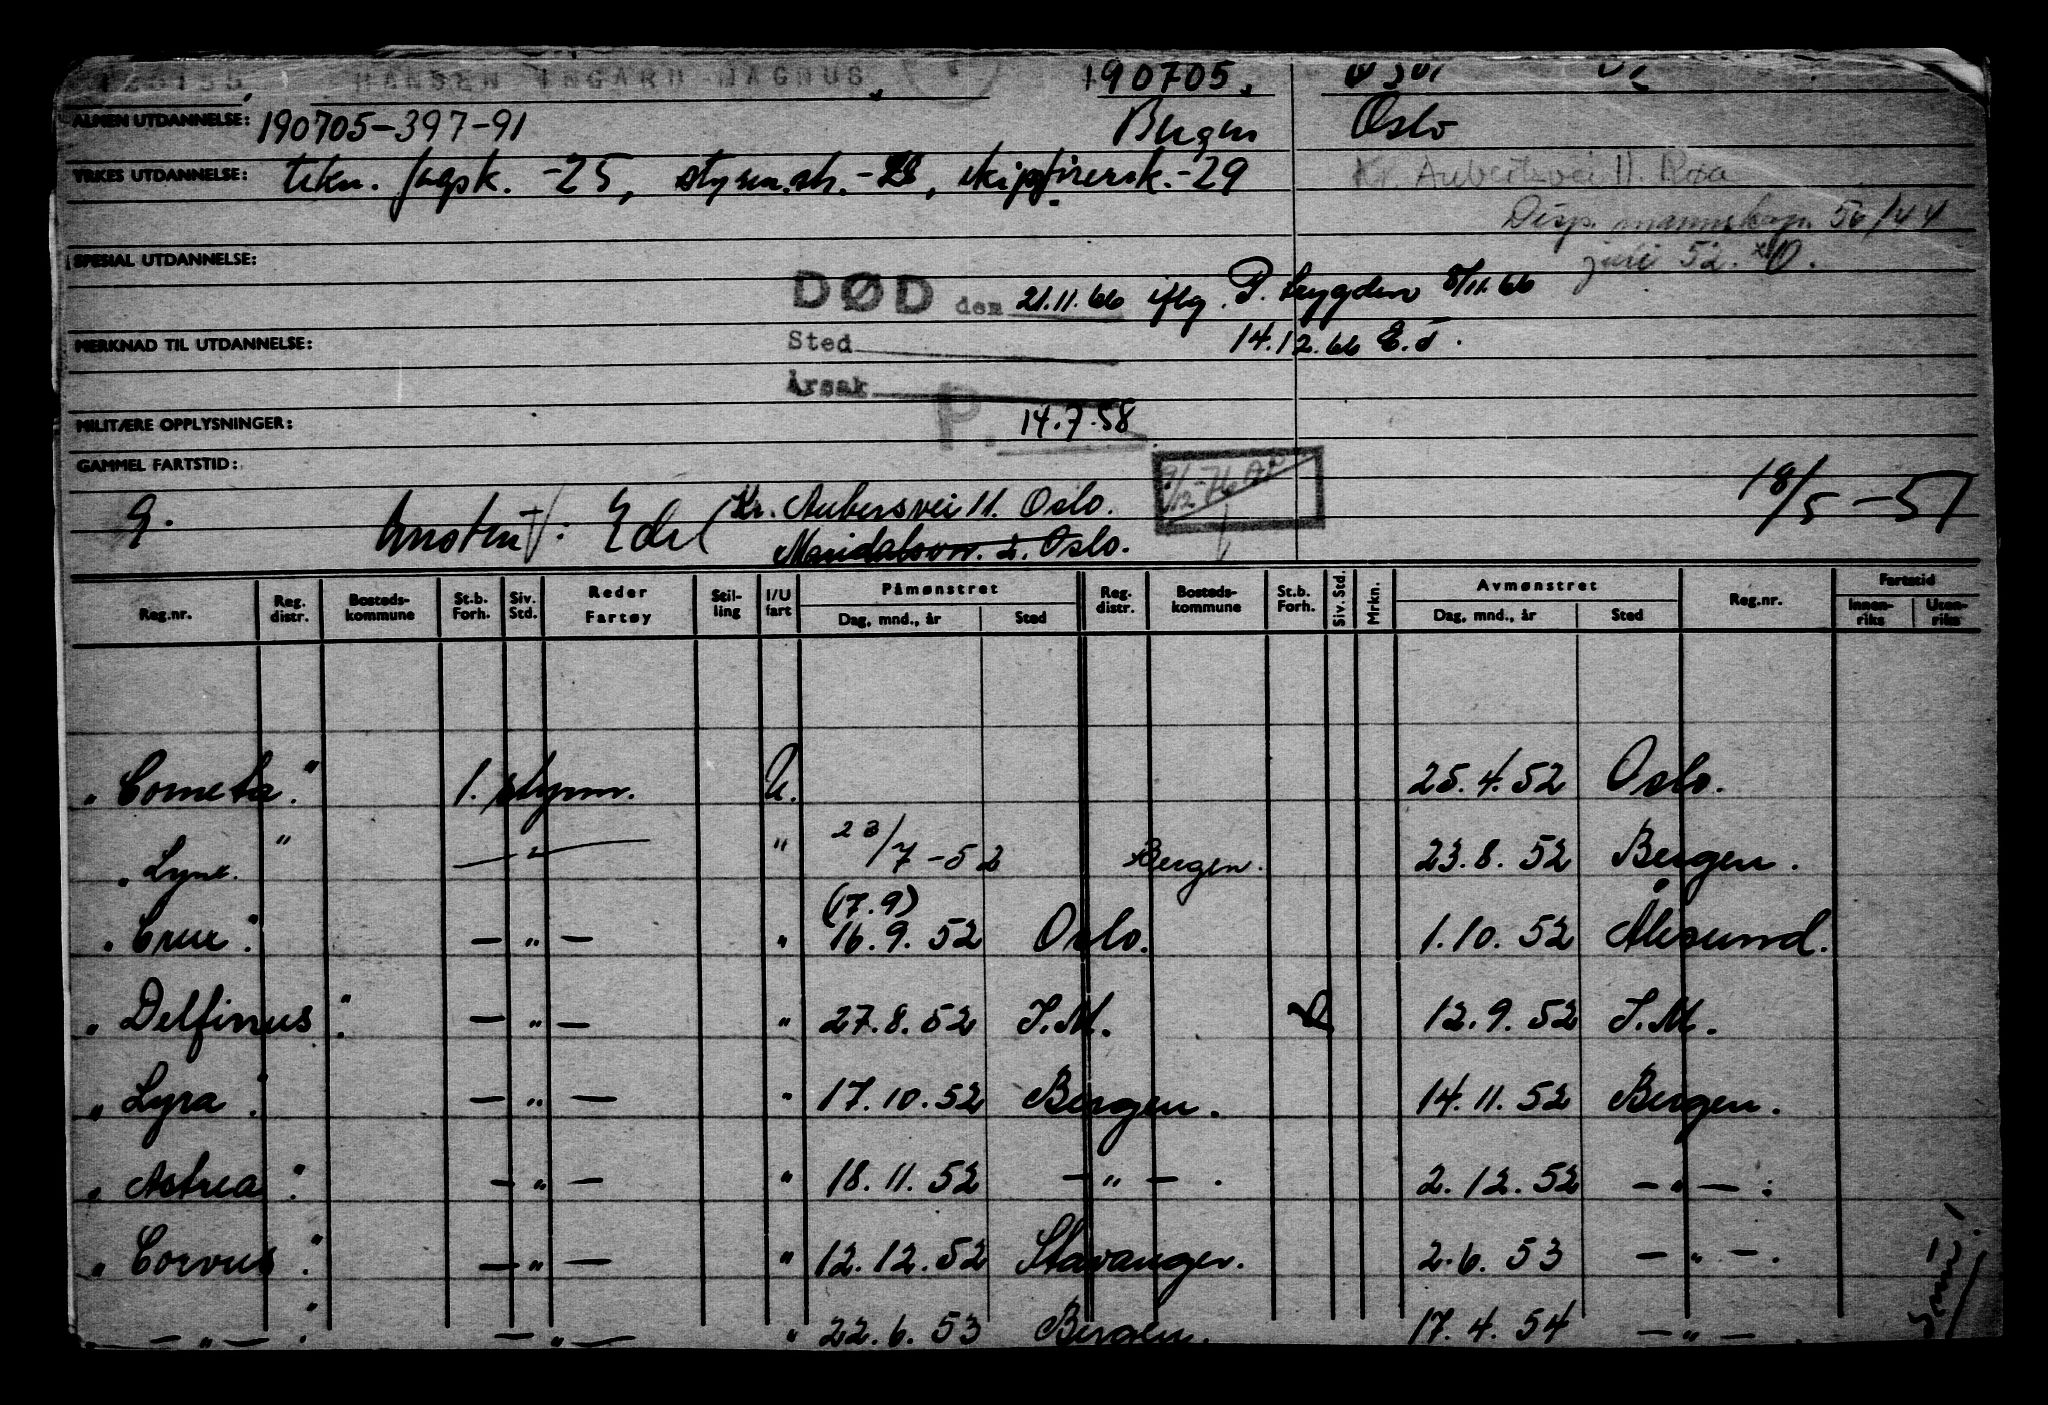 HANSEN INGARD MAGNUS. 190705.
ALMEN UTDANNELSE: 190705-397-91 Bergen Oslo
YRKES UTDANNELSE: tekn. fagsk. -25, styrm.sk. - , skipsførersk. -29 Kr. Auberts vei 11. Roa
Disp. mannskap. 56/44
juli 52.
SPESIAL UTDANNELSE:
DØD den 21.11.66 iflg. P. trygden 8/11.66
MERKNAD TIL UTDANNELSE: Sted 14.12.66 E.T.
Årsak
MILITÆRE OPPLYSNINGER: P. 14.7.58
GAMMEL FARTSTID:
9/12-76
18/5-57
G. Enstem/: Edel Kr. Aubersvei 11. Oslo.
Maridalsvn. 2. Oslo.
Reg.nr. Reg. distr. Bosteds-kommune St.b. Forh. Siv. Std. Reder Fartøy Stil-ling I/U fart Påmønstret Dag, mnd., år Sted Reg. distr. Bosteds-kommune St.b. Forh. Siv. Std. Mrkn. Avmønstret Dag, mnd., år Sted Reg.nr. Fartstid Innen-riks Uten-riks
"Cometa". 1. styrm. U. 25.4.52 Oslo.
"Lynx." — " — " 23/7-52 Bergen. 23.8.52 Bergen.
(17.9)
"Crux". — " — " 16.9.52 Oslo. 1.10.52 Ålesund.
"Delfinus". — " — " 27.8.52 I.M. 12.9.52 I.M.
"Lyra". — " — " 17.10.52 Bergen. 14.11.52 Bergen.
"Astrea". — " — " 18.11.52 — " — . 2.12.52 — " — .
"Corvus". — " — " 12.12.52 Stavanger. 2.6.53 — " — .
" — " — ". — " — " 22.6.53 Bergen. 17.4.54 — " — .